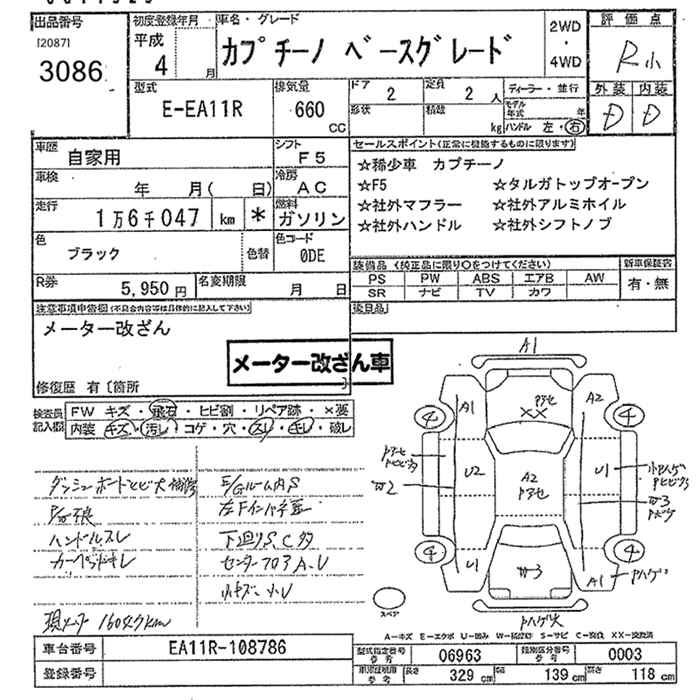 出品番号
[2087]
3086
初度登録年月
平成
4
月
車名・グレード
カプチーノ ベースグレード
2WD
・
4WD
評価点
R小
外装 内装
D D
型式
E-EA11R
排気量
660
CC
ドア
2
定員
2 人
形状
積載
kg
ディーラー・並行
モデル年式 年
ハンドル 左・右
車歴
自家用
シフト
F5
車検
年 月( 日)
冷房
AC
走行
1万6千047 km *
燃料
ガソリン
色
ブラック
色替
色コード
0DE
R券
5,950円
名変期限
月 日
セールスポイント(正常に機能するものに限ります)
☆稀少車 カプチーノ
☆F5 ☆タルガトップオープン
☆社外マフラー ☆社外アルミホイル
☆社外ハンドル ☆社外シフトノブ
装備品 (純正品に限り○をつけてください)
新車保証書
PS PW ABS エアB AW
SR ナビ TV カワ
有・無
後日品
注意事項申告欄(不具合内容等は具体的に記入して下さい)
メーター改ざん
メーター改ざん車
修復歴 有〔箇所 〕
検査員記入欄
FW キズ・飛石・ヒビ割・リペア跡・×要
内装 キズ・汚レ・コゲ・穴・スレ・キレ・破レ
ダッシュボードヒビ大補修
P/W不良
ハンドルスレ
カーペットキレ
E/Gルーム A,S
左Fインパネ歪
下廻りS,C多
センターフロアA,U
小キズ・小U
現メーター 16047km
A1
A1
A2
Pアセ
XX
4
4
4
4
U2
A2
Pアセ
U1
U1
A1
W2
W3
W3
Pハゲ
Pハゲ大
スペア
A-キズ E-エクボ U-凹み W-補修跡 S-サビ C-腐食 XX-交換済
車台番号
EA11R-108786
登録番号
型式指定番号
参考
06963
類別区分番号
参考
0003
車添証明用
参考
長さ
329 cm
幅
139 cm
高さ
118 cm